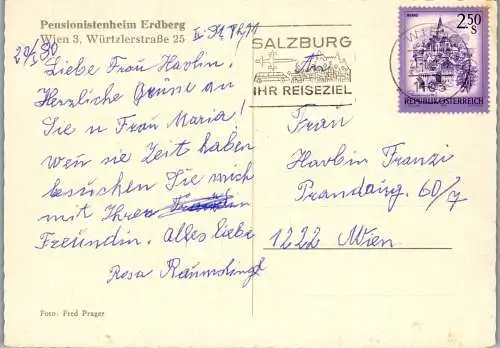 Pensionistenheim Erdberg
Wien 3, Würtzlerstraße 25
20/5 80
Liebe Frau Havlin,
Herzliche Grüße an
Sie u Frau Maria!
wen sie Zeit haben
besuchen Sie mich
mit Ihrer
Freundin. Alles liebe
Rosa
Foto: Fred Prager
SALZBURG
IHR REISEZIEL
2.50
S
REPUBLIK ÖSTERREICH
An
Frau
Havlin Franzi
Prandaug. 60/7
1222 Wien